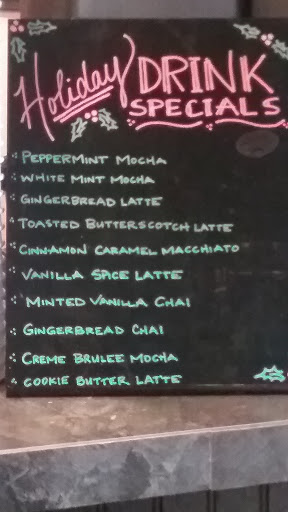 Holiday DRINK
SPECIALS
PEPPERMINT MOCHA
WHITE MINT MOCHA
GINGERBREAD LATTE
TOASTED BUTTERSCOTCH LATTE
CINNAMON CARAMEL MACCHIATO
VANILLA SPICE LATTE
MINTED VANILLA CHAI
GINGERBREAD CHAI
CREME BRULEE MOCHA
COOKIE BUTTER LATTE